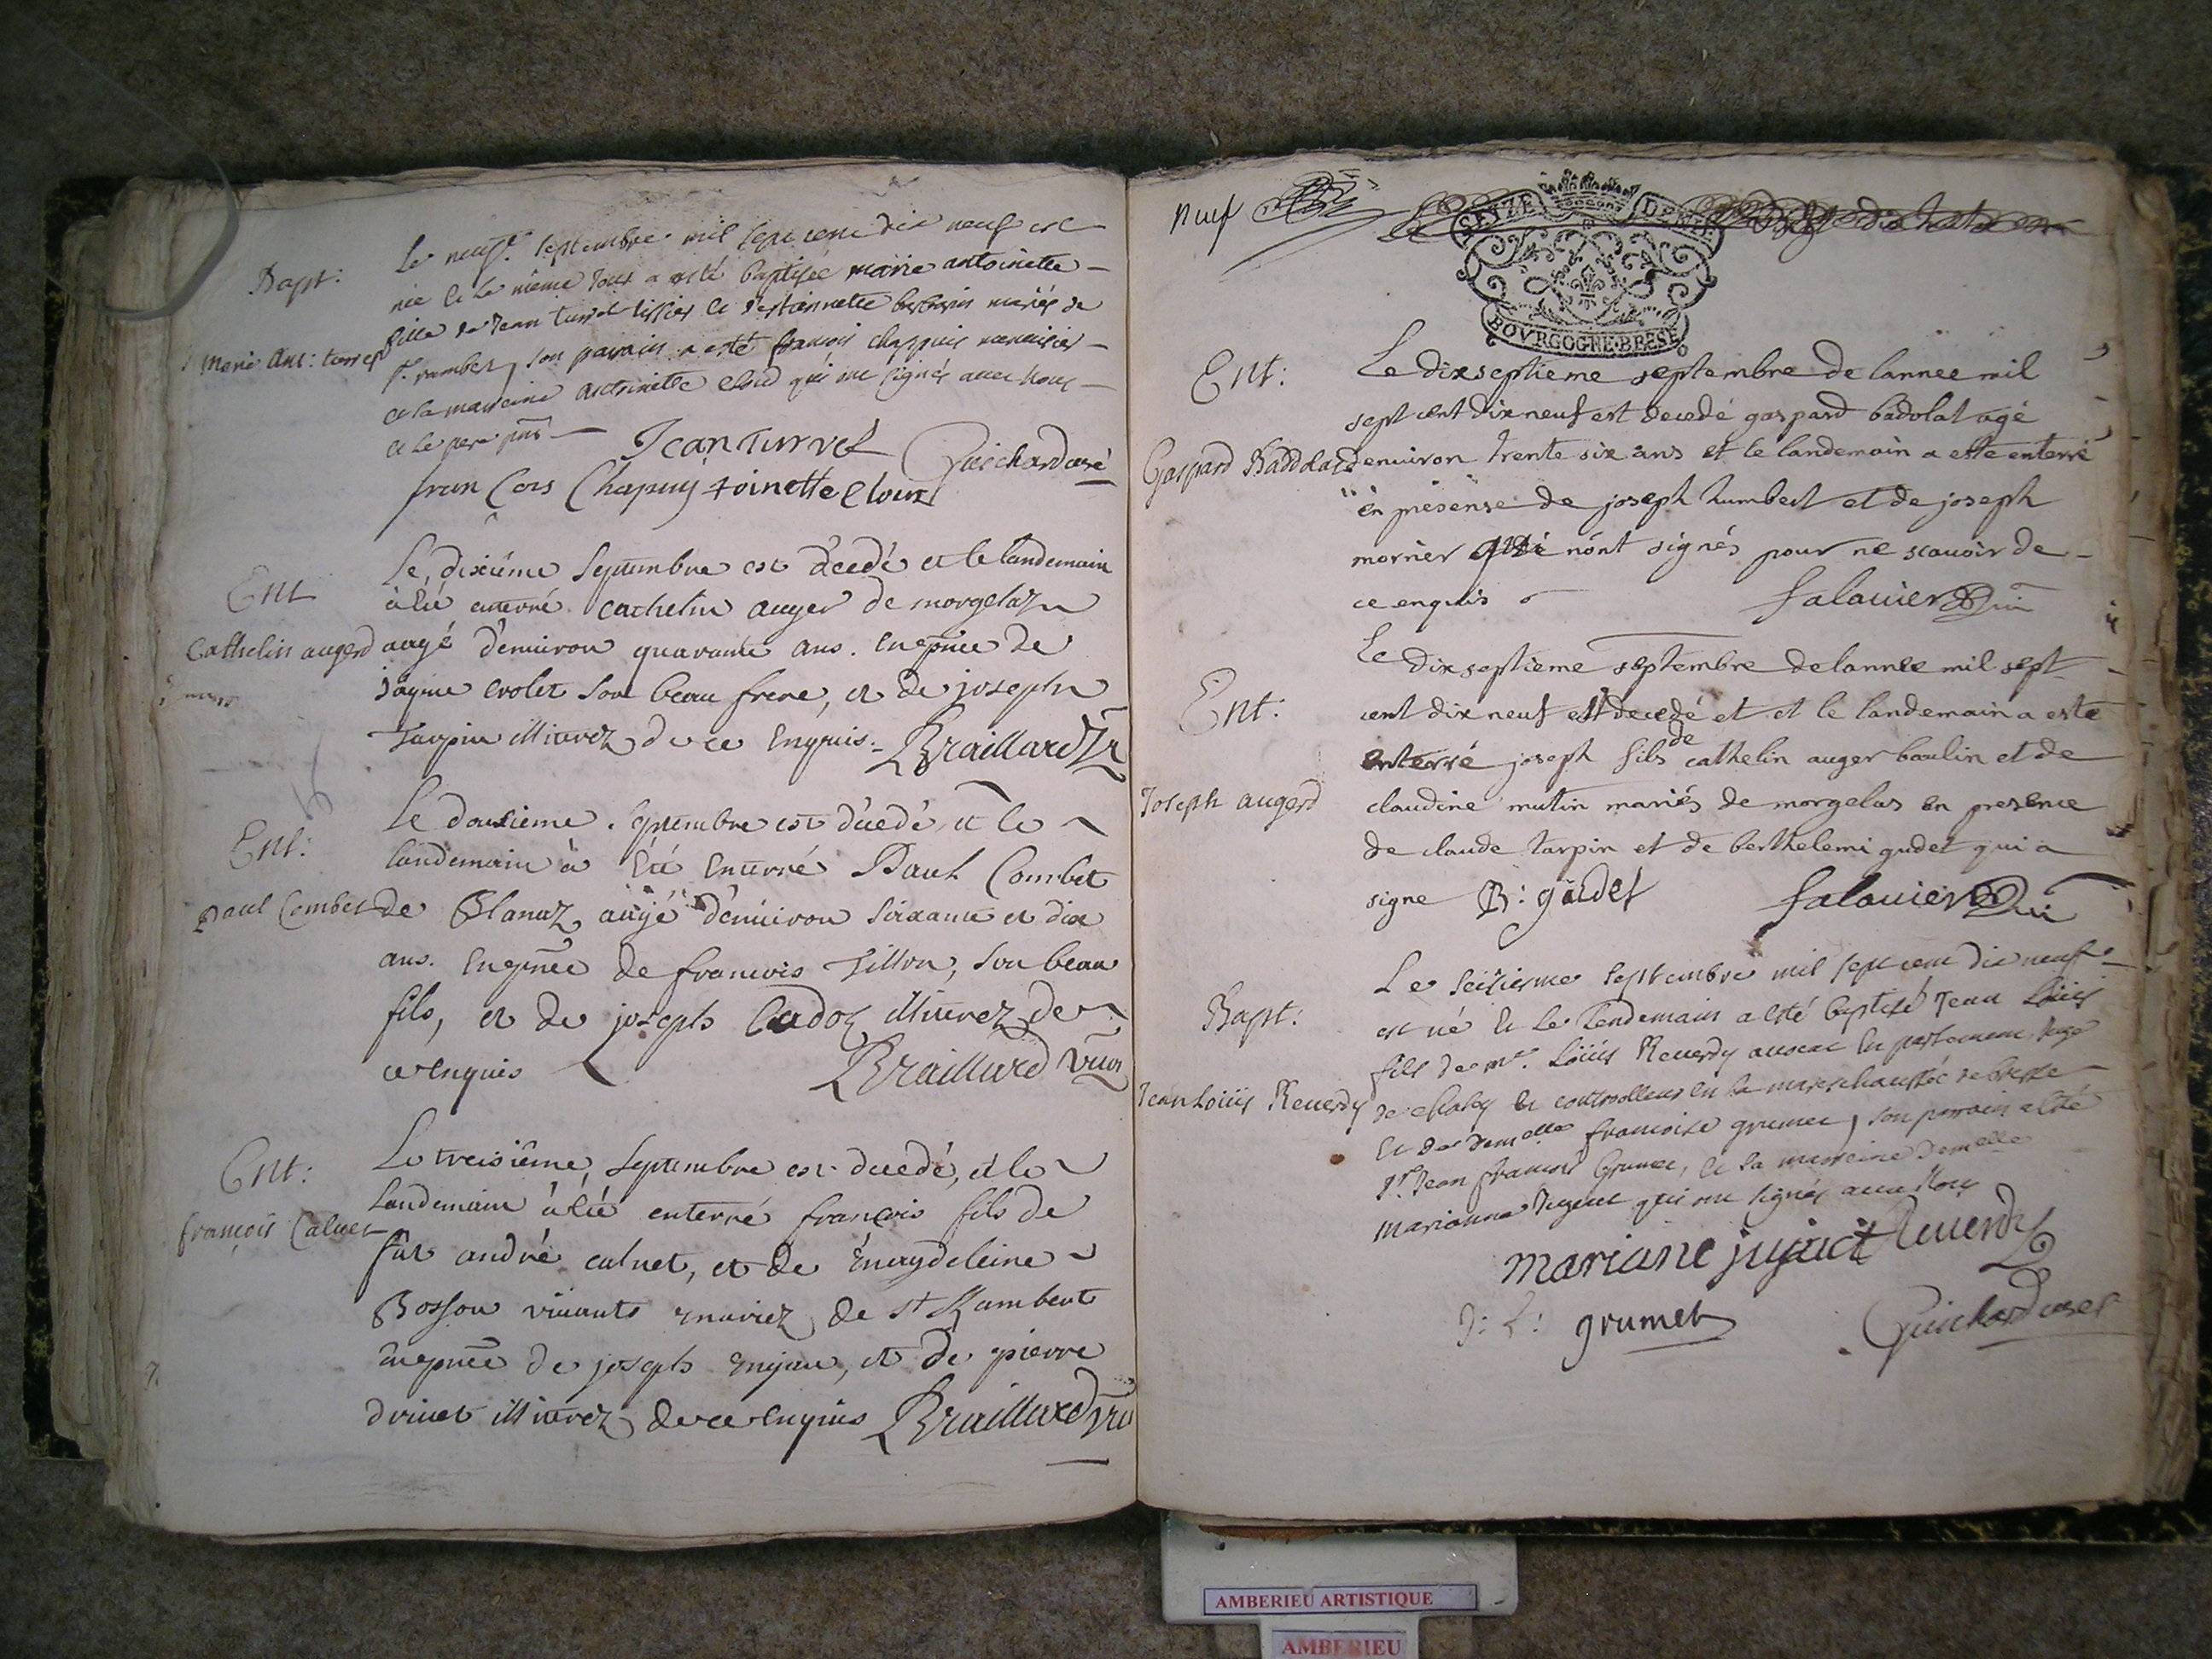 Bapt:
Marie Ant: turrel
Le neuf.e septembre mil sept cent dix neuf est
née et le même Jour a esté baptisée marie antoinette
fille de Jean turrel tissier et d'estiennette mariés de
St rambert, son parain a esté françois chappuis menuisier
et la marreine antoinette cloud qui ont signés avec Nous
et le pere pnt
Jean Turrel Guichard curé
fran Cois Chapuy toinette clout
Ent
Cathelin augerd
Le, dixiéme Septembre est décedé et le landemain
à été enterré cathelin auger de morgelaz
augé d'enuiron quarante ans. en pnce de
Jayme crolet son beau frere, et de joseph
Tarpin illiterez de ce Enquis. Braillard
Ent:
Paul Combet
Le douxieme septembre est décedé et le
landemain à Eté Enterré Paul Combet
de Blanaz, augé d'enuiron soixante et dix
ans. En pnce de francois Tillon, son beau
fils, et de joseph illiterez de
ce enquis Braillard vic
Ent:
françois Caluet
Le treisiéme, Septembre est decedé, et le
landemain à été enterré francois fils de
fut andré caluet, et de magdeleine
Bosson viuants mariez de st Rambert
En pnce de joseph enjeu, et de pierre
driuet illiterez de ce enquis Braillard vic
neuf
SEYZE DENIE
BOVRGOGNE.BRESE
Ent:
Gaspard Baddolat
Le dixseptieme septembre de lannee mil
sept cent dix neuf est decedé gaspard badolat agé
enuiron trente six ans et le landemain a este enterré
en presense de joseph humbert et de joseph
mornier qui n'ont signés pour ne scauoir de
ce enquis falauier
Ent:
Joseph augerd
Le dixseptieme septembre de lannee mil sept
cent dix neuf est decedé et et le landemain a este
enterré joseph fils de cathelin auger baulin et de
claudine mutin mariés de morgelas en presence
de claude tarpin et de berthelemi gudet qui a
signe B: gudet falauier
Bapt:
Jean Loüis Reuerdy
Le seisiesme septembre mil sept cent dix neuf
est né et le lendemain a esté baptisé Jean Loüis
fils de mr. Loüis Reuerdy auocat en parlement, Juge
de et controolleur en la mareschaussée de bresse
et de demelle francoise grumet, son parrain a esté
Sr Jean francois Grumet, et la marreine demelle
marianne Jujeat qui ont signés auec Nous
mariane jujact Reuerdy
J: f: grumet Guichard curé
AMBERIEU ARTISTIQUE
AMBERIEU